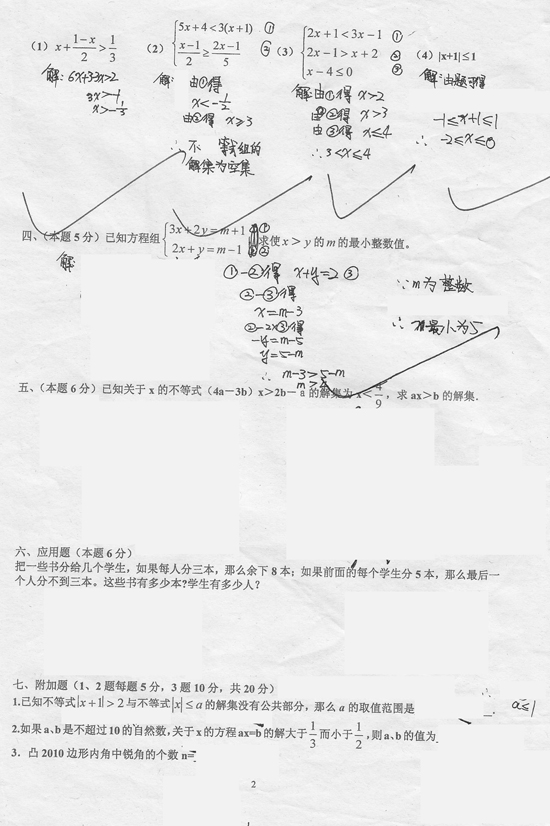 (1) x+(1-x)/2>1/3 (2) {5x+4<3(x+1) ① (x-1)/2≥(2x-1)/5 ② (3) {2x+1<3x-1 ① 2x-1>x+2 ② x-4≤0 ③ (4) |x+1|≤1
解: 6x+3-3x>2 由①得 解:由①得 x>2 解:由题可得
3x>-1 x<-1/2 由②得 x>3 -1≤x+1≤1
x>-1/3 由②得 x≥3 由③得 x≤4 -2≤x≤0
∴不等式组的 ∴3<x≤4
解集为空集
四、(本题5分)已知方程组{3x+2y=m+1 ① 2x+y=m-1 ② 求使x>y的m的最小整数值。
解:
①-②得 x+y=2 ③ ∵m为整数
②-③得
x=m-3
②-2×③得 ∴m最小为5
-y=m-5
y=5-m
∴ m-3>5-m
m>4
五、(本题6分)已知关于x的不等式(4a-3b)x>2b-a的解集为x<4/9,求ax>b的解集.
六、应用题(本题6分)
把一些书分给几个学生,如果每人分三本,那么余下8本;如果前面的每个学生分5本,那么最后一
个人分不到三本。这些书有多少本?学生有多少人?
七、附加题(1、2题每题5分,3题10分,共20分)
1.已知不等式|x+1|>2与不等式|x|≤a的解集没有公共部分,那么a的取值范围是 a≤1
2.如果a、b是不超过10的自然数,关于x的方程ax=b的解大于1/3而小于1/2,则a、b的值为
3.凸2010边形内角中锐角的个数n=
2